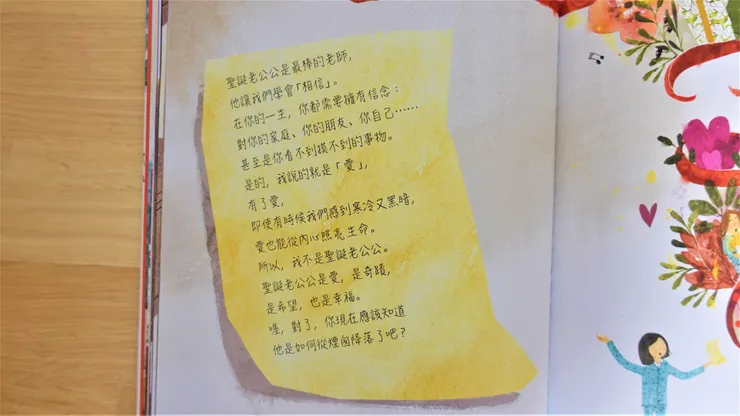 聖誕老公公是最棒的老師，
他讓我們學會「相信」。
在你的一生，你都需要擁有信念：
對你的家庭、你的朋友、你自己⋯⋯
甚至是你看不到摸不到的事物。
是的，我說的就是「愛」，
有了愛，
即便有時候我們感到寒冷又黑暗，
愛也能從內心照亮生命。
所以，我不是聖誕老公公。
聖誕老公公是愛，是奇蹟，
是希望，也是幸福。
喔，對了，你現在應該知道
他是如何從煙囪降落了吧？